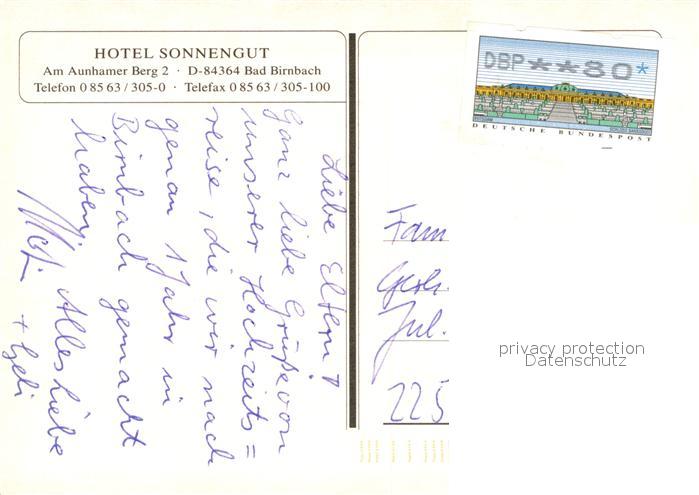 HOTEL SONNENGUT
Am Aunhamer Berg 2 · D-84364 Bad Birnbach
Telefon 0 85 63 / 305-0 · Telefax 0 85 63 / 305-100
Liebe Eltern!
Ganz liebe Grüße von
unserer Hochzeits=
reise, die wir nach
genau 1 Jahr in
Birnbach gemacht
haben,
Alles Liebe
DBP**80*
DEUTSCHE BUNDESPOST
Fam
Gerh.
Jul.
225
privacy protection
Datenschutz